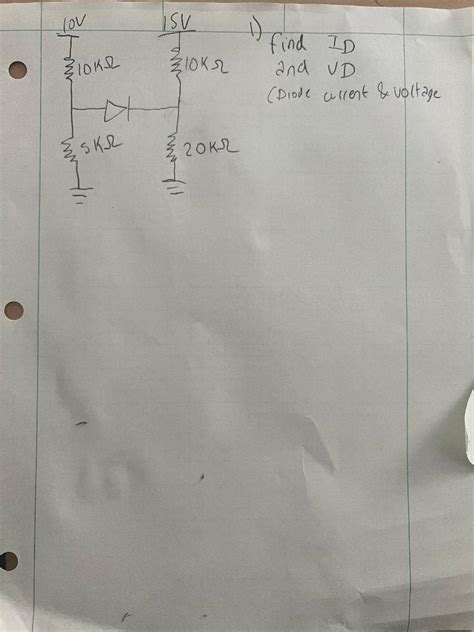 10V 15V 1) find ID
10KΩ 10KΩ and VD
(Diode current & voltage
5KΩ 20KΩ